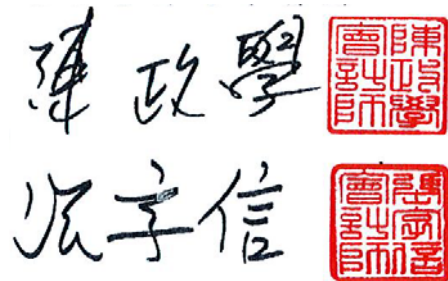 陳政學
陳政學會計師
張字信
張字信會計師